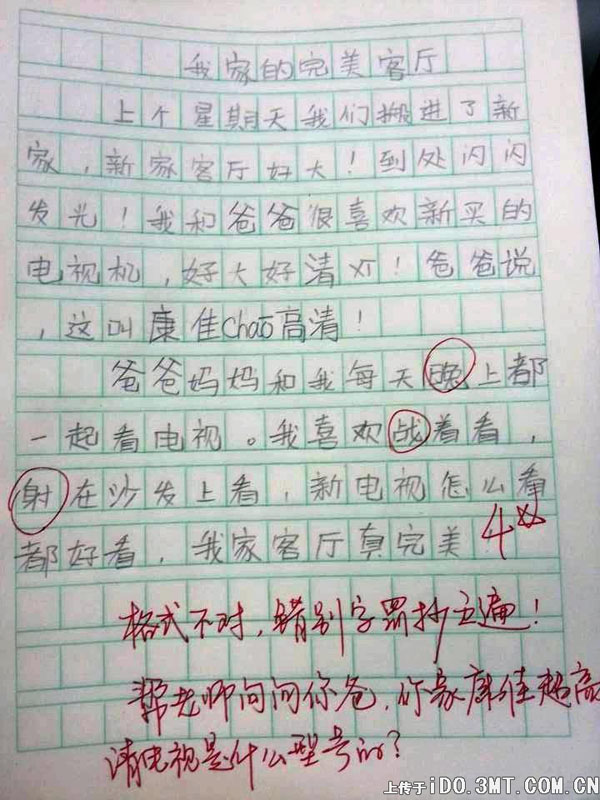 我家的完美客厅
上个星期天我们搬进了新
家，新家客厅好大！到处闪闪
发光！我和爸爸很喜欢新买的
电视机，好大好清！爸爸说
，这叫康佳chāo高清！
爸爸妈妈和我每天晚上都
一起看电视。我喜欢战着看，
射在沙发上看，新电视怎么看
都好看，我家客厅真完美
4分
格式不对，错别字罚抄五遍！
帮老师问问你爸，你家康佳超高
清电视是什么型号的？
上传于iDO.3MT.COM.CN